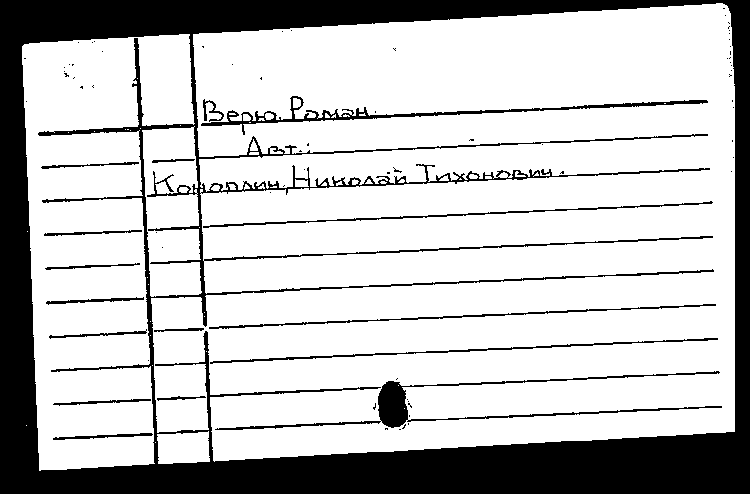 Верю. Роман.
Авт.:
Коноплин, Николай Тихонович.